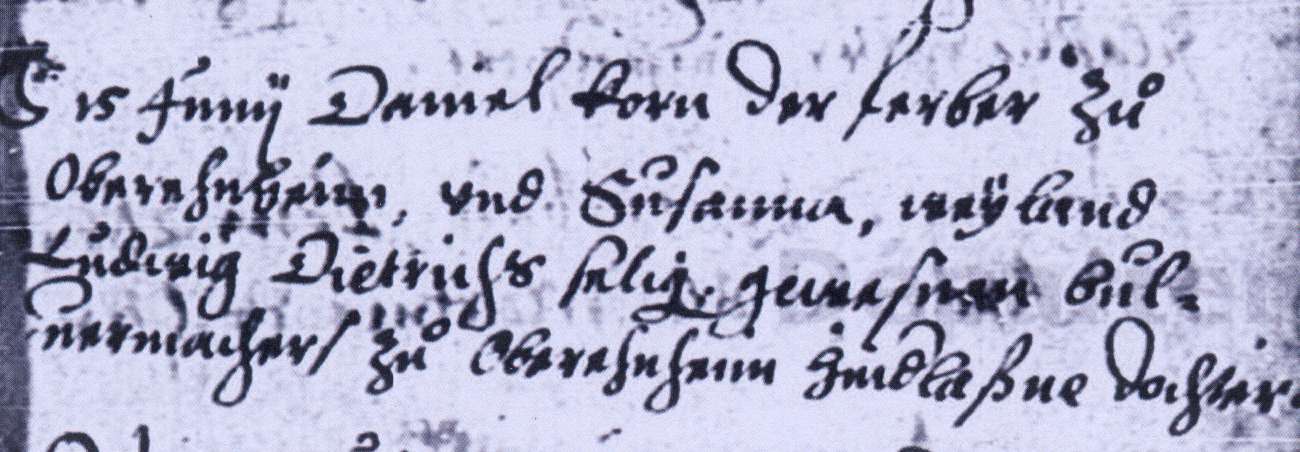 15 Junij Daniel Korn der ferber Zů
Oberehnheim, vnd Susanna, weÿland
Ludwig Dietrichs selig. gewesnen bul-
uermachers Zů Oberehnheim hindlaßne dochter.